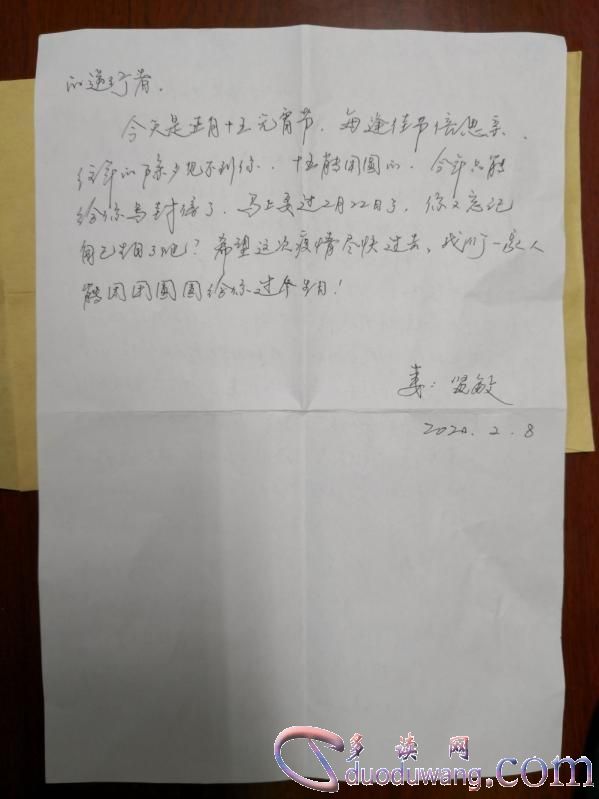 的逆行者。
今天是正月十五元宵节，每逢佳节倍思亲，
往年的除夕见不到你，十五能团圆的，今年只能
给你写封信了，马上要过2月22日了，你又忘记
自己生日了吧？希望这次疫情尽快过去，我们一家人
能团团圆圆给你过个生日！
妻：贤敏
2020.2.8
多读网
duoduwang.com